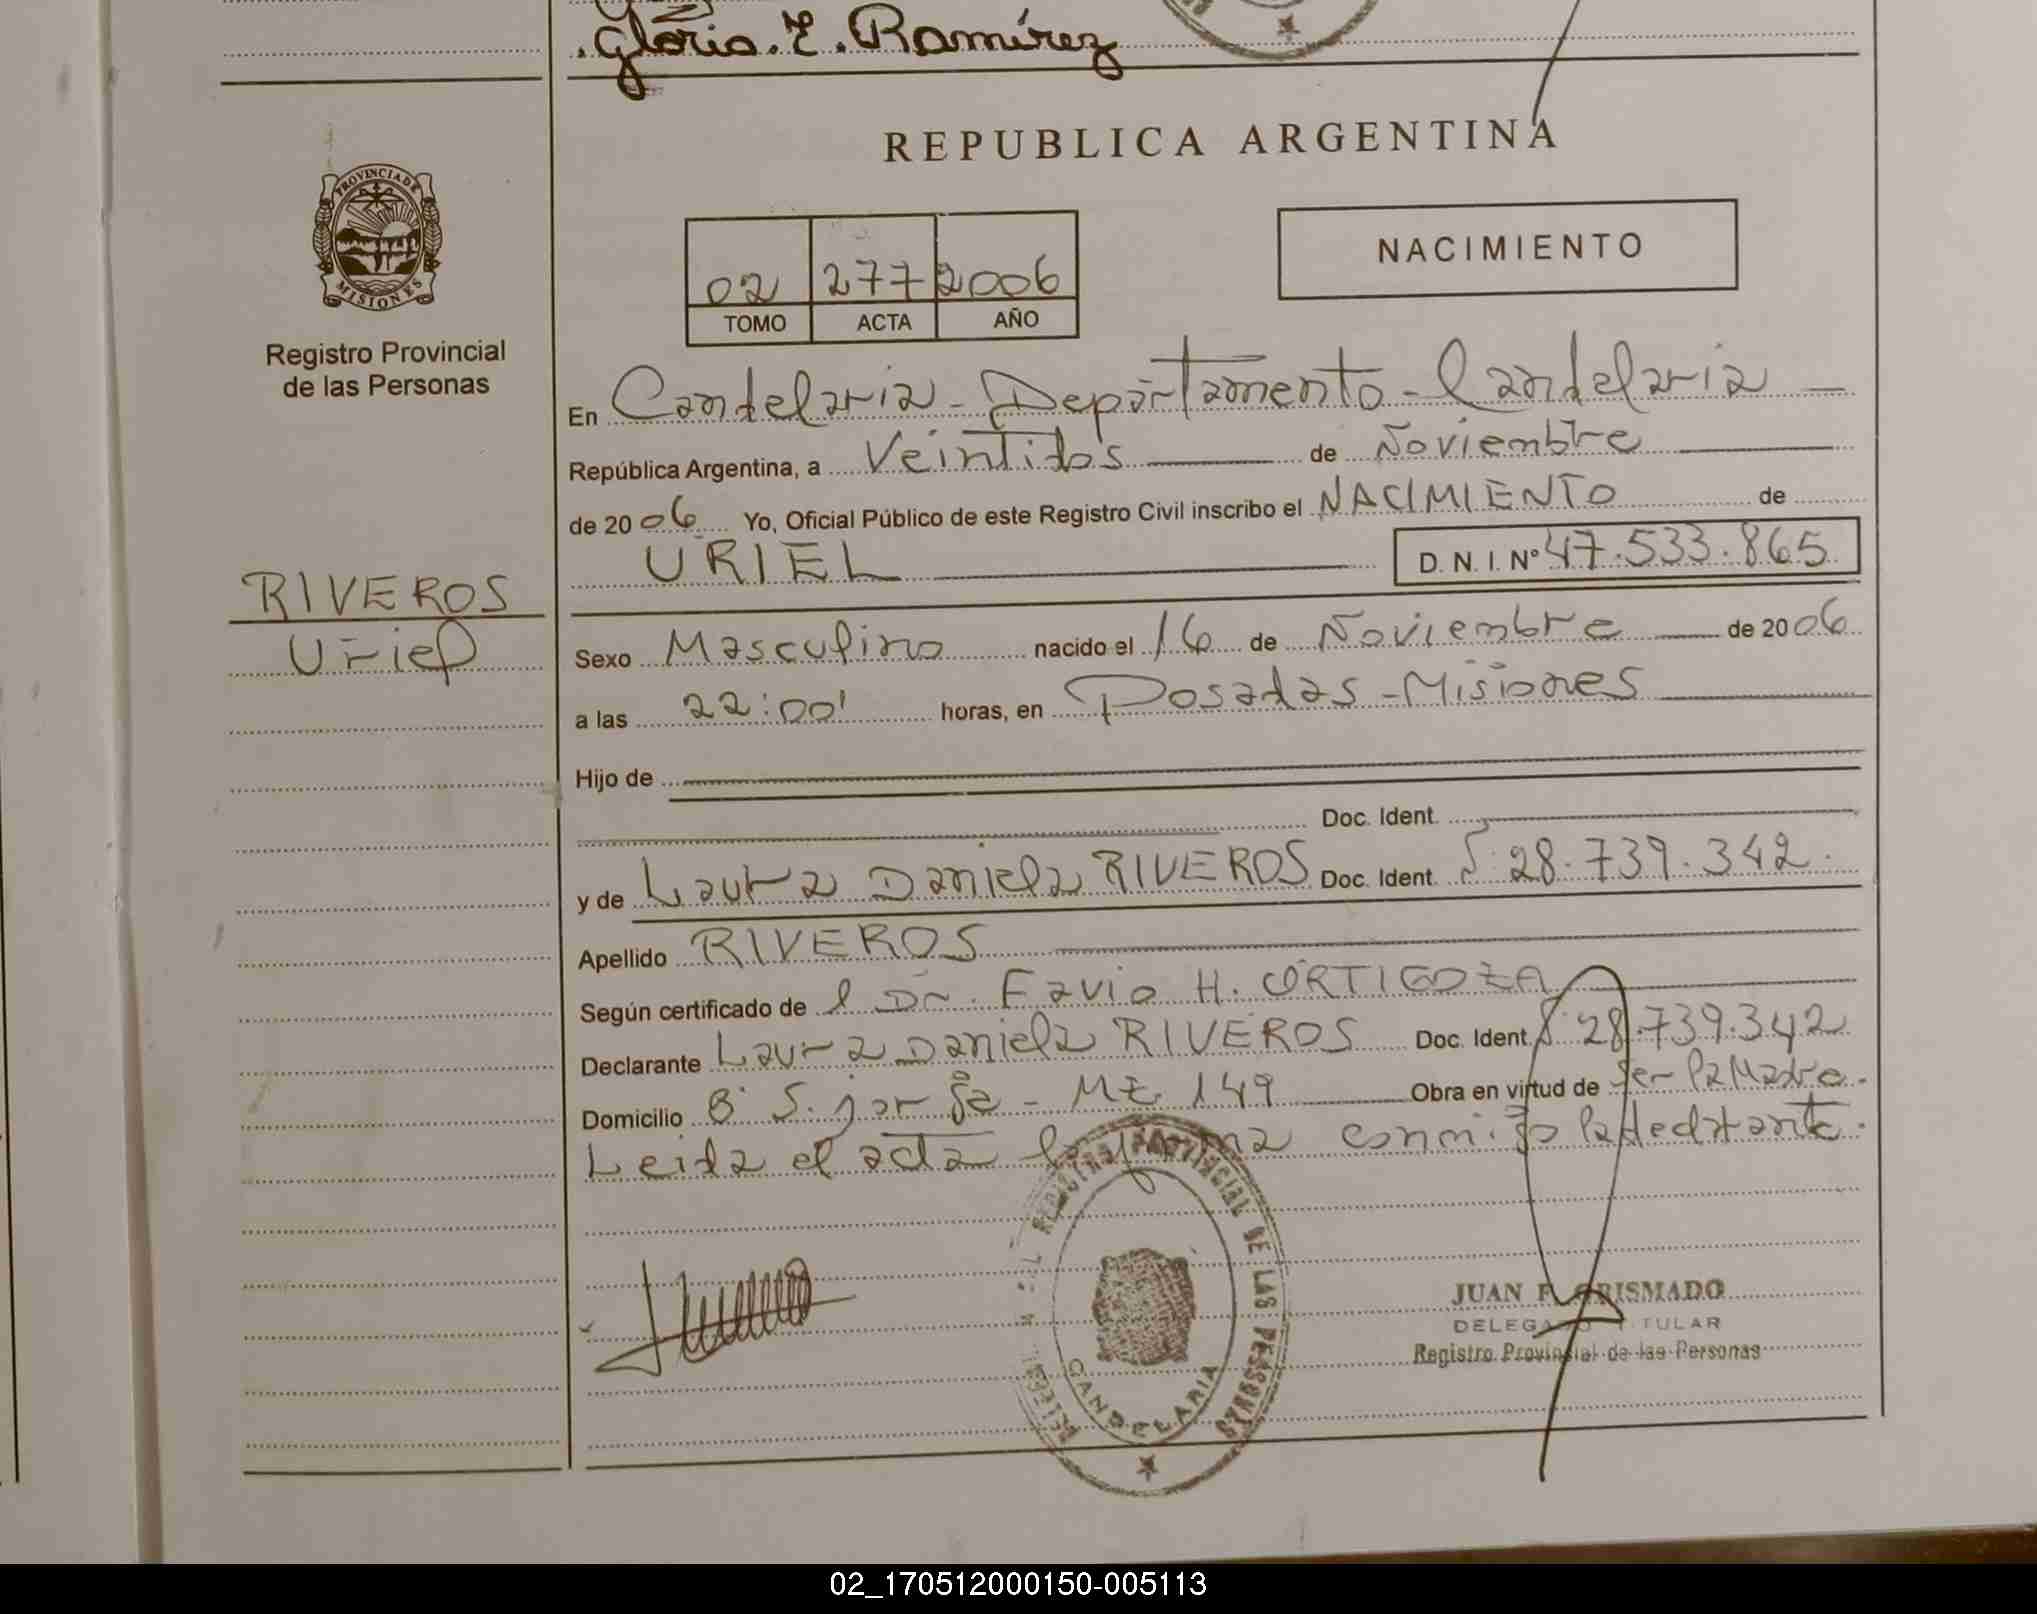 Gloria. E. Ramírez
REPUBLICA ARGENTINA
PROVINCIA DE
MISIONES
Registro Provincial
de las Personas
NACIMIENTO
02 277 2006
TOMO ACTA AÑO
En Candelaria - Departamento - Candelaria -
República Argentina, a Veintidós de Noviembre
de 2006 Yo, Oficial Público de este Registro Civil inscribo el NACIMIENTO de
URIEL D.N.I. Nº 47.533.865
RIVEROS
Uriel
Sexo Masculino nacido el 16 de Noviembre de 2006
a las 22:00' horas, en Posadas - Misiones
Hijo de
Doc. Ident.
y de Laura Daniela RIVEROS Doc. Ident. 28.739.342.
Apellido RIVEROS
Según certificado de l Dr. Favio H. ORTIGOZA
Declarante Laura Daniela RIVEROS Doc. Ident. 28.739.342
Domicilio Bº S. jorge - Mz 149 Obra en virtud de ser la Madre.
Leida el acta la firma conmigo la declarante.
REGISTRO PROVINCIAL DE LAS PERSONAS
CANDELARIA
JUAN F. GRISMADO
DELEGADO TITULAR
Registro Provincial de las Personas
02_170512000150-005113